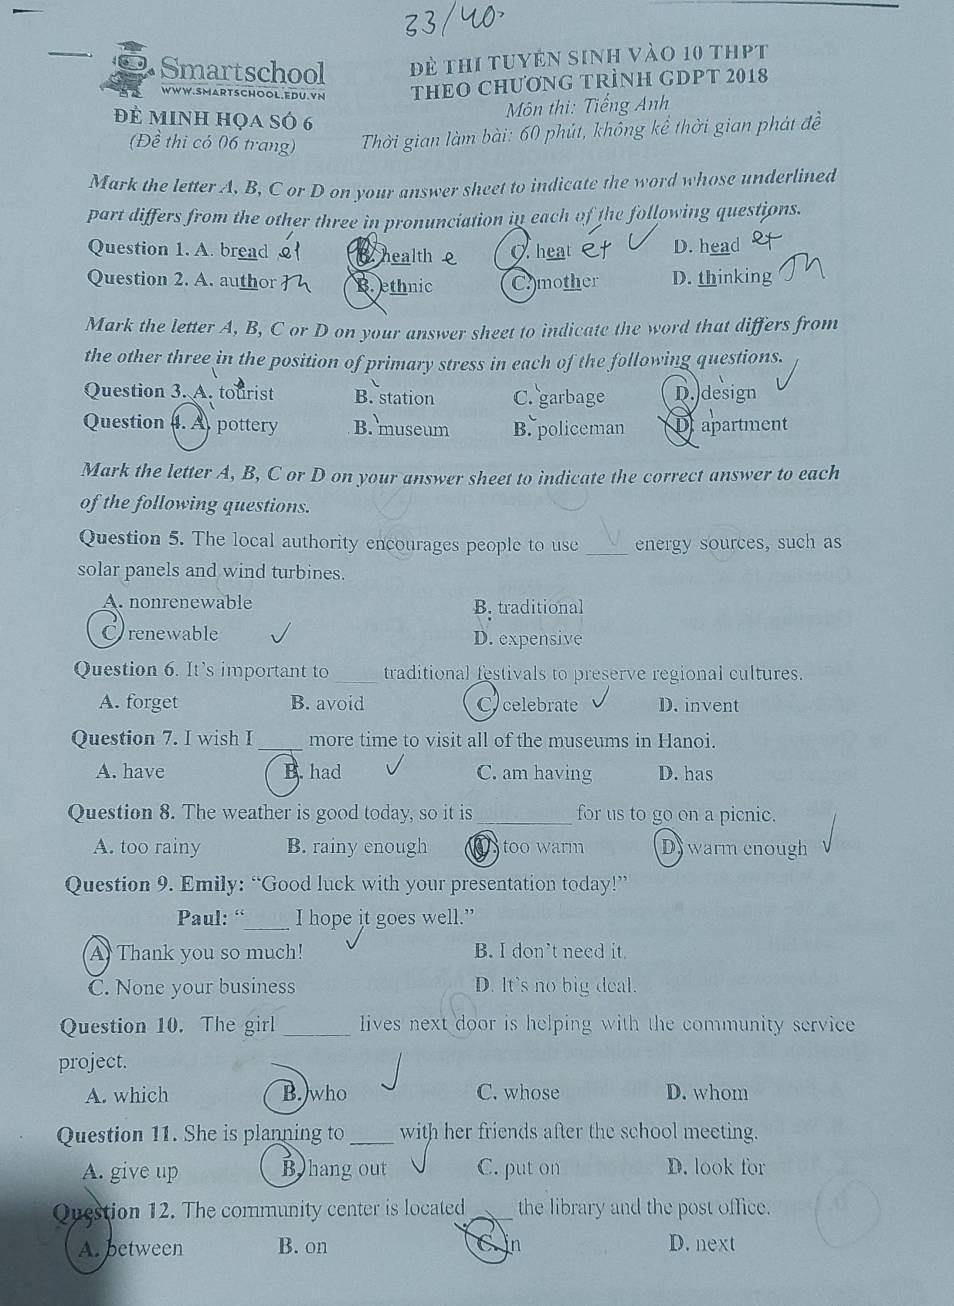 33/40
Smartschool
WWW.SMARTSCHOOL.EDU.VN
ĐỀ THI TUYỂN SINH VÀO 10 THPT
THEO CHƯƠNG TRÌNH GDPT 2018
ĐỀ MINH HỌA SỐ 6
Môn thi: Tiếng Anh
(Đề thi có 06 trang)
Thời gian làm bài: 60 phút, không kể thời gian phát đề
Mark the letter A, B, C or D on your answer sheet to indicate the word whose underlined
part differs from the other three in pronunciation in each of the following questions.
Question 1. A. bread B. health e C. heat D. head
Question 2. A. author B. ethnic C. mother D. thinking
Mark the letter A, B, C or D on your answer sheet to indicate the word that differs from
the other three in the position of primary stress in each of the following questions.
Question 3. A. tourist B. station C. garbage D. design
Question 4. A. pottery B. museum B. policeman D. apartment
Mark the letter A, B, C or D on your answer sheet to indicate the correct answer to each
of the following questions.
Question 5. The local authority encourages people to use _____ energy sources, such as
solar panels and wind turbines.
A. nonrenewable B. traditional
C. renewable D. expensive
Question 6. It's important to _____ traditional festivals to preserve regional cultures.
A. forget B. avoid C. celebrate D. invent
Question 7. I wish I _____ more time to visit all of the museums in Hanoi.
A. have B. had C. am having D. has
Question 8. The weather is good today, so it is __________ for us to go on a picnic.
A. too rainy B. rainy enough too warm D. warm enough
Question 9. Emily: “Good luck with your presentation today!”
Paul: “_____ I hope it goes well.”
A. Thank you so much! B. I don't need it.
C. None your business D. It's no big deal.
Question 10. The girl _______ lives next door is helping with the community service
project.
A. which B. who C. whose D. whom
Question 11. She is planning to _____ with her friends after the school meeting.
A. give up B. hang out C. put on D. look for
Question 12. The community center is located _____ the library and the post office.
A. between B. on C. in D. next